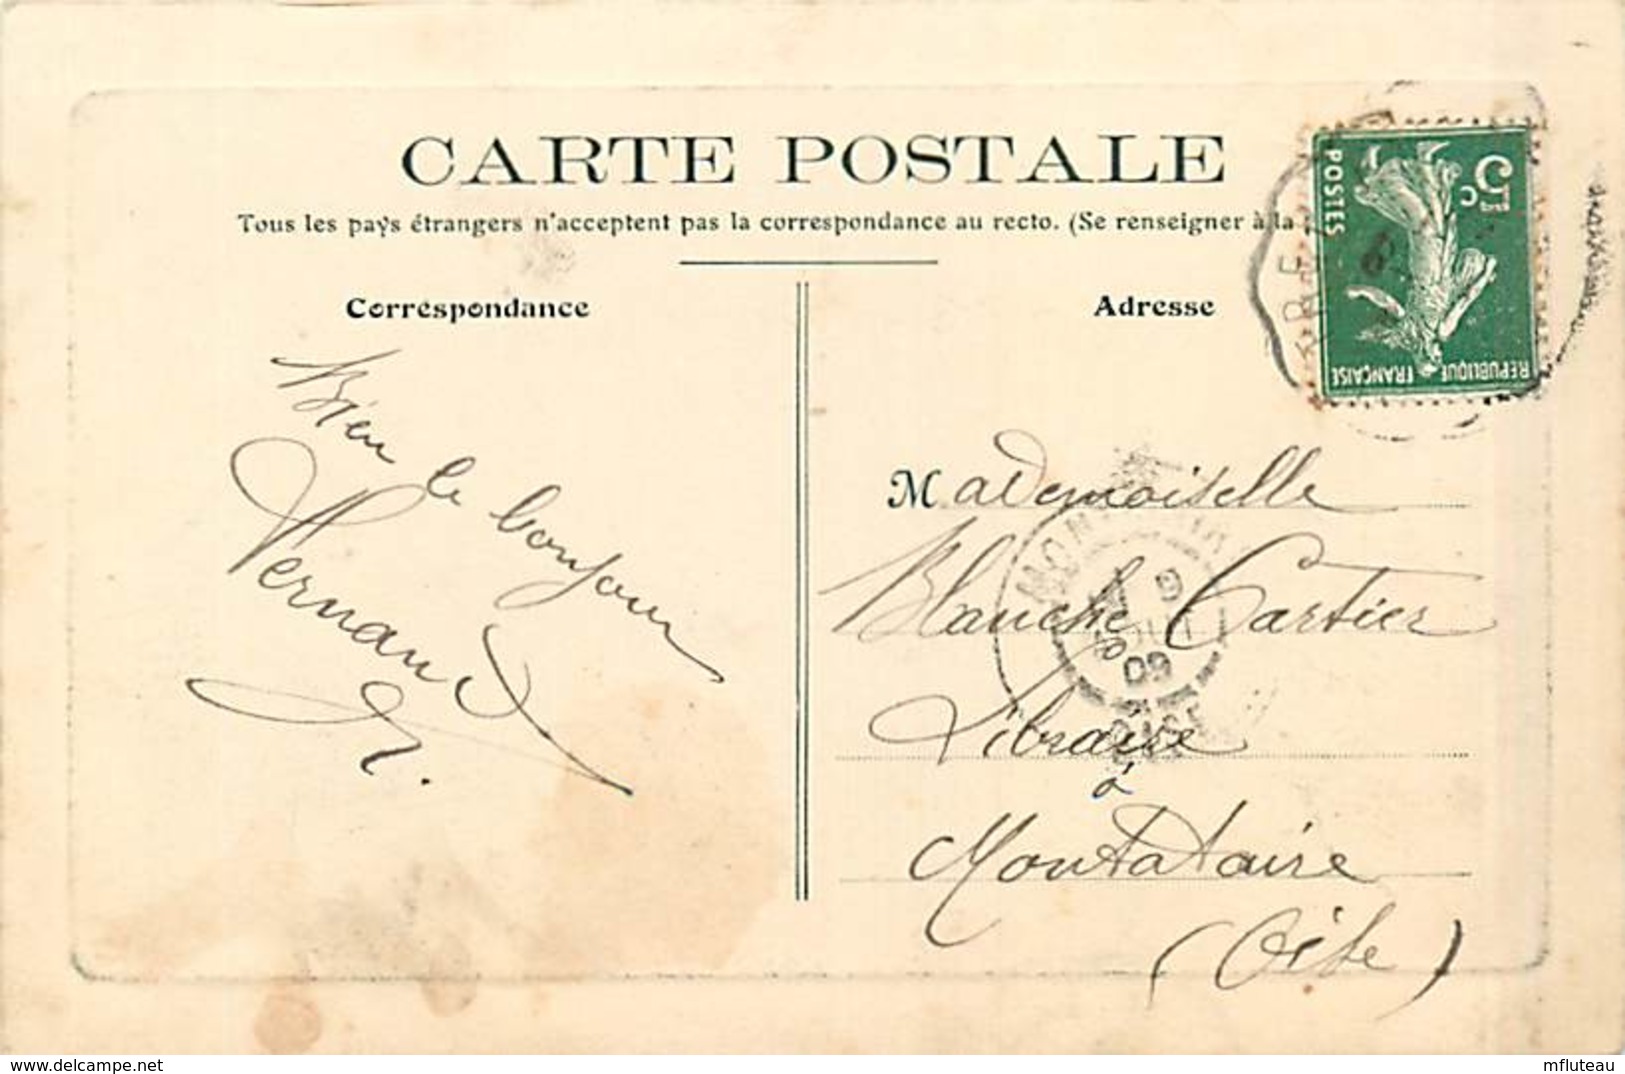 CARTE POSTALE
Tous les pays étrangers n'acceptent pas la correspondance au recto. (Se renseigner à la
Correspondance
Adresse
5c
POSTES
REPUBLIQUE FRANÇAISE
Bien le bonjour
Vernaud
Mademoiselle
Blanche Cartier
Libraire
à
Montataire
(Oise)
9
09
OISE
www.delcampe.net
mfluteau